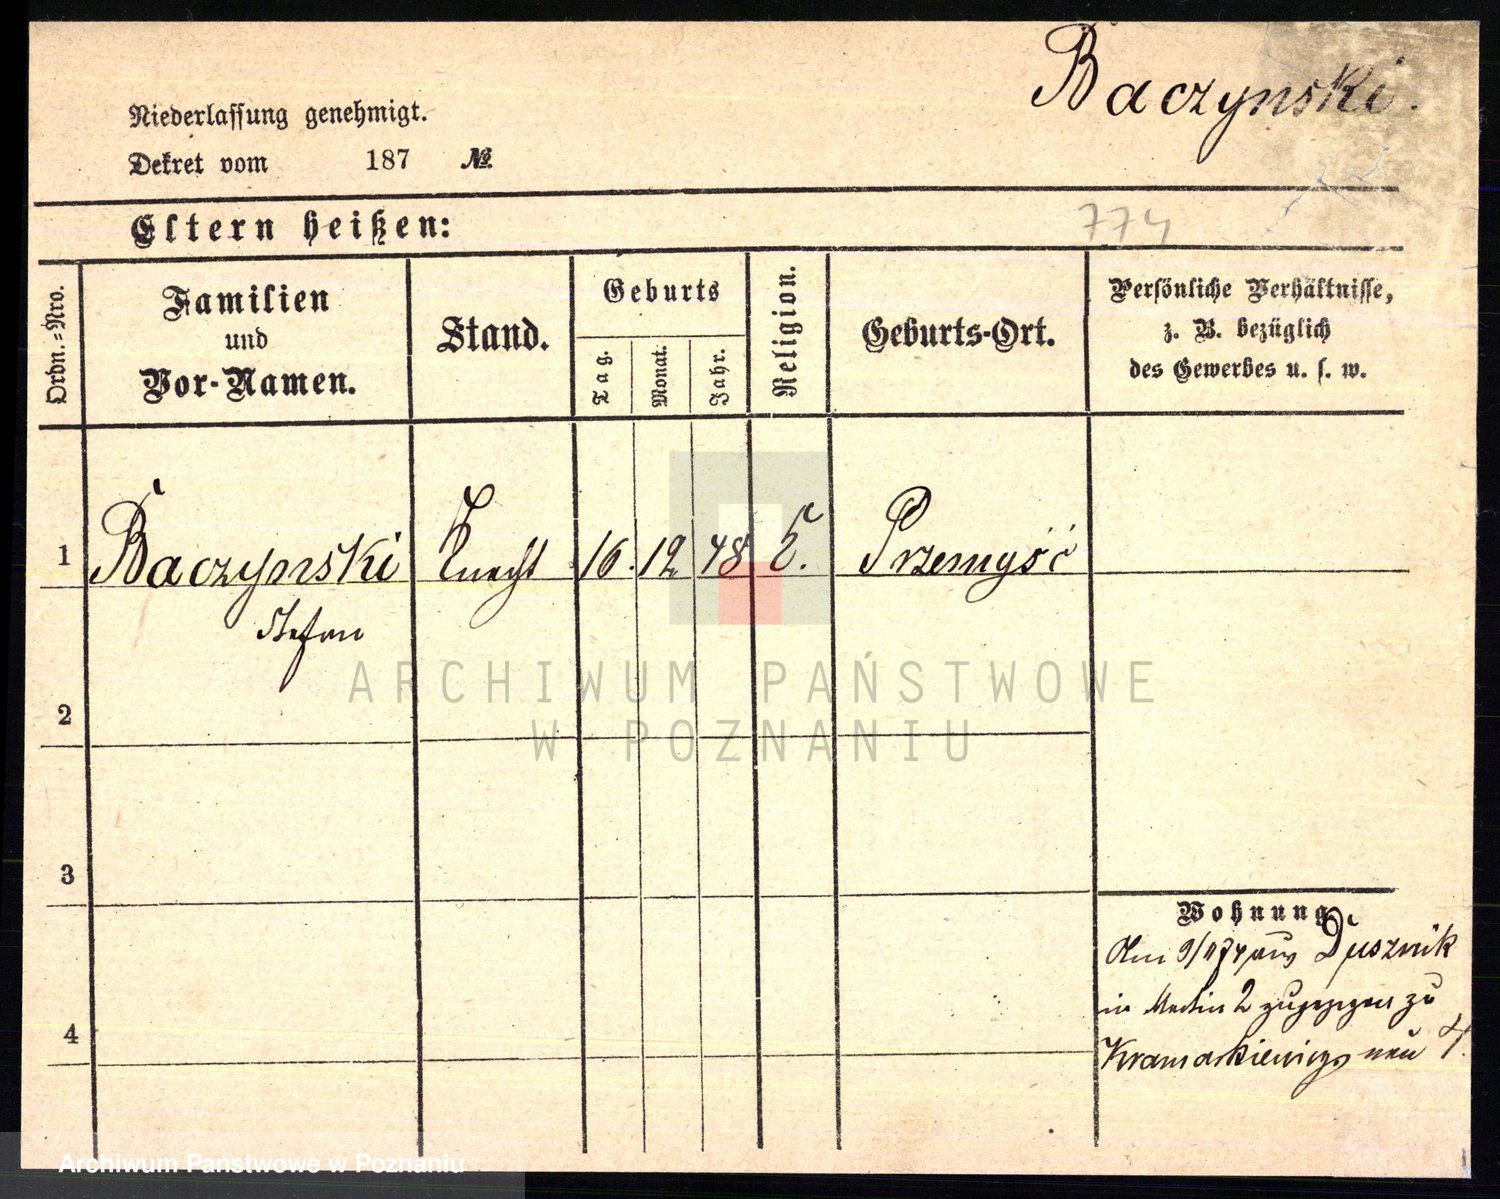 Baczynski.
Niederlassung genehmigt.
Dekret vom 187 №
774
Eltern heißen:
Ordn.=Nro.
Familien
und
Vor-Namen.
Stand.
Geburts
Tag.
Monat.
Jahr.
Religion.
Geburts-Ort.
Persönliche Verhältnisse,
z. B. bezüglich
des Gewerbes u. s. w.
1 Baczynski Knecht 16. 12 48 Przemyść
Stefan
ARCHIWUM PAŃSTWOWE
W POZNANIU
2
3
4
Wohnung
Am 9/1 74 aus Dusznik
in Martin 2 zugezogen zu
Kramarkiewicz neu 4.
Archiwum Państwowe w Poznaniu